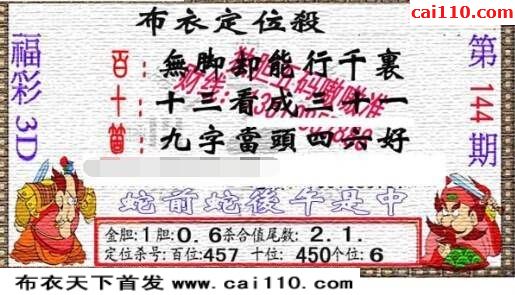 cai110.com
布衣定位殺
福彩3D
第144期
百：無脚却能行千裏
十：十三看成三十一
個：九字當頭四六好
蛇前蛇後午是中
金胆：1胆：0.6杀合值尾数：2.1.
定位杀号：百位：457 十位：450个位：6
布衣天下首发 www.cai110.com